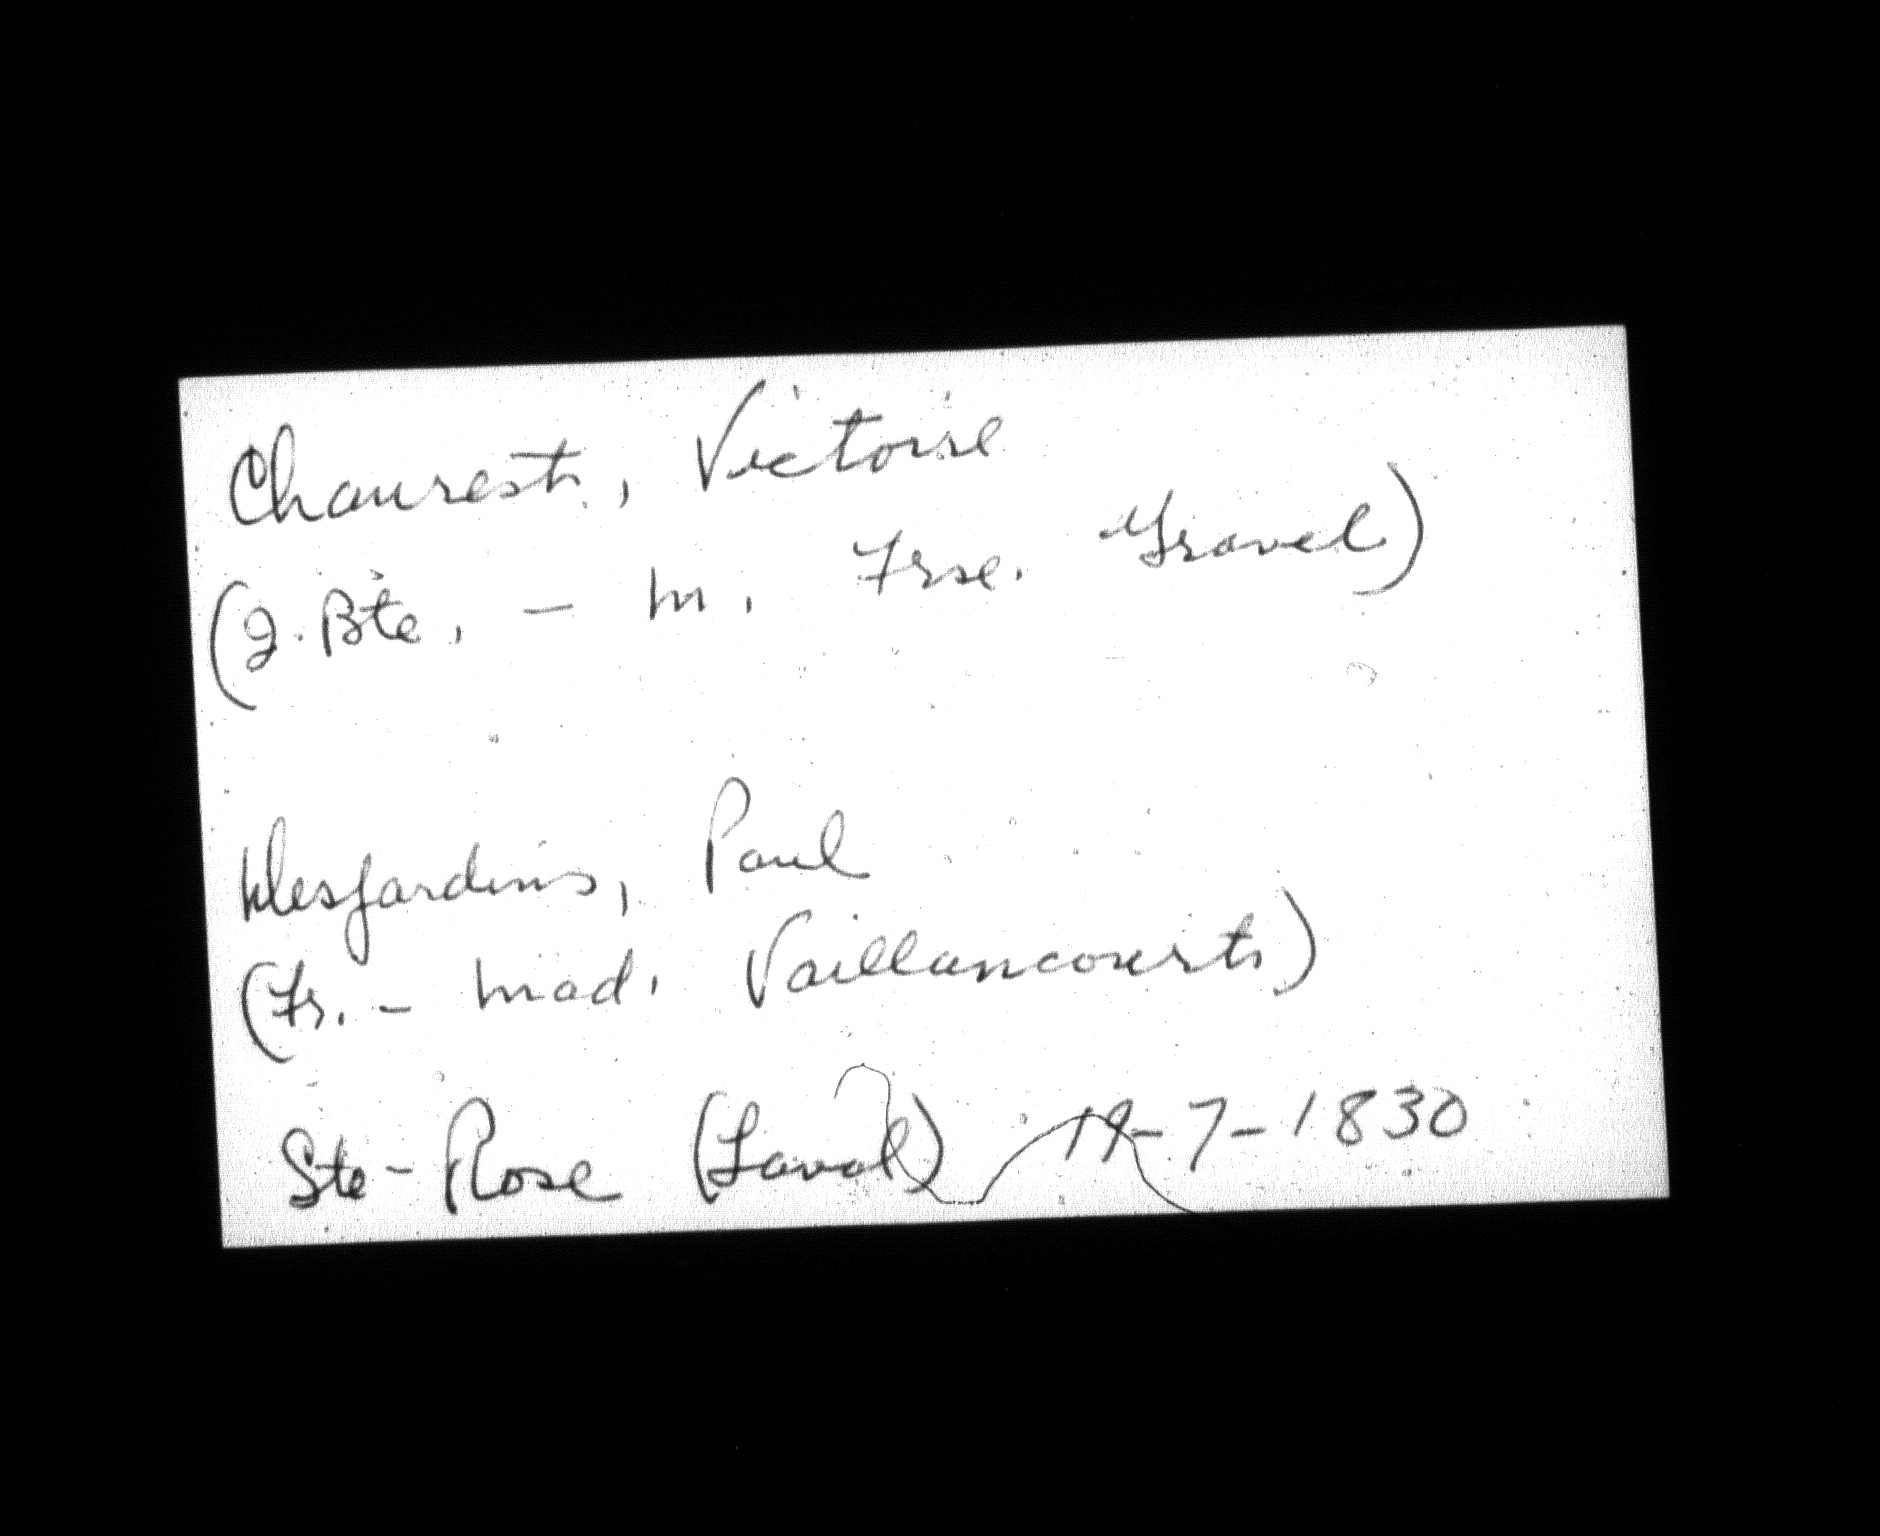 Chaurest, Victoire
(J. Bte, - M. Frse. Gravel)
Desjardins, Paul
(Fr. - Mad. Vaillancourt)
Ste-Rose (Laval) 19-7-1830